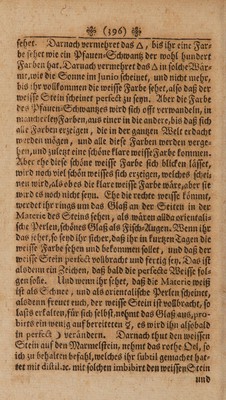 (396)
sehet. Darnach vermehret das △, bis ihr eine Far-
be sehet wie ein Pfauen-Schwantz der wohl hundert
Farben hat. Darnach vermehret das △ in solche Wär-
me, wie die Sonne im Junio scheinet, und nicht mehr,
bis ihr vollkommen die weisse Farbe sehet, also daß der
weisse Stein scheinet perfect zu seyn. Aber die Farbe
des Pfauen-Schwantzes wird sich offt verwandeln, in
mancherley Farben, aus einer in die andere, bis daß sich
alle Farben erzeigen, die in der gantzen Welt erdacht
werden mögen, und alle diese Farben werden verge-
hen, und zuletzt eine schöne klare weisse Farbe kommen.
Aber ehe diese schöne weisse Farbe sich blicken lässet,
wird noch viel schön weisses sich erzeigen, welches schei-
nen wird, als obes die klare weisse Farbe wäre, aber sie
wird es noch nicht seyn. Ehe die rechte weisse kömmt,
werdet ihr rings um das Glaß an der Seiten in der
Materie des Steins sehen, als wären allda orientali-
sche Perlen, schönes Glaß als Fisch-Augen. Wenn ihr
das sehet, so seyd ihr sicher, daß ihr in kurtzen Tagen die
weisse Farbe sehen und bekommen sollet, und daß der
weisse Stein perfect vollbracht und fertig sey. Das ist
als denn ein Zeichen, daß bald die perfecte Weisse fol-
gen solle. Und wenn ihr sehet, daß die Materie weiß
ist als Schnee, und als orientalische Perlen scheinet,
alsdenn freuet euch, der weisse Stein ist vollbracht, so
laß es erkalten, für sich selbst, nehmt das Glaß aus, pro-
birts ein wenig auf bereitetem ☿, es wird ihn alsobald
in perfect ☽ verändern. Darnach thut den weissen
Stein auf den Marmelstein, nehmt das rothe Oel, so
ich zu behalten befahl, welches ihr subtil gemachet hat-
tet mit distil. ꝛc. mit solchen imbibirt den weissen Stein
und